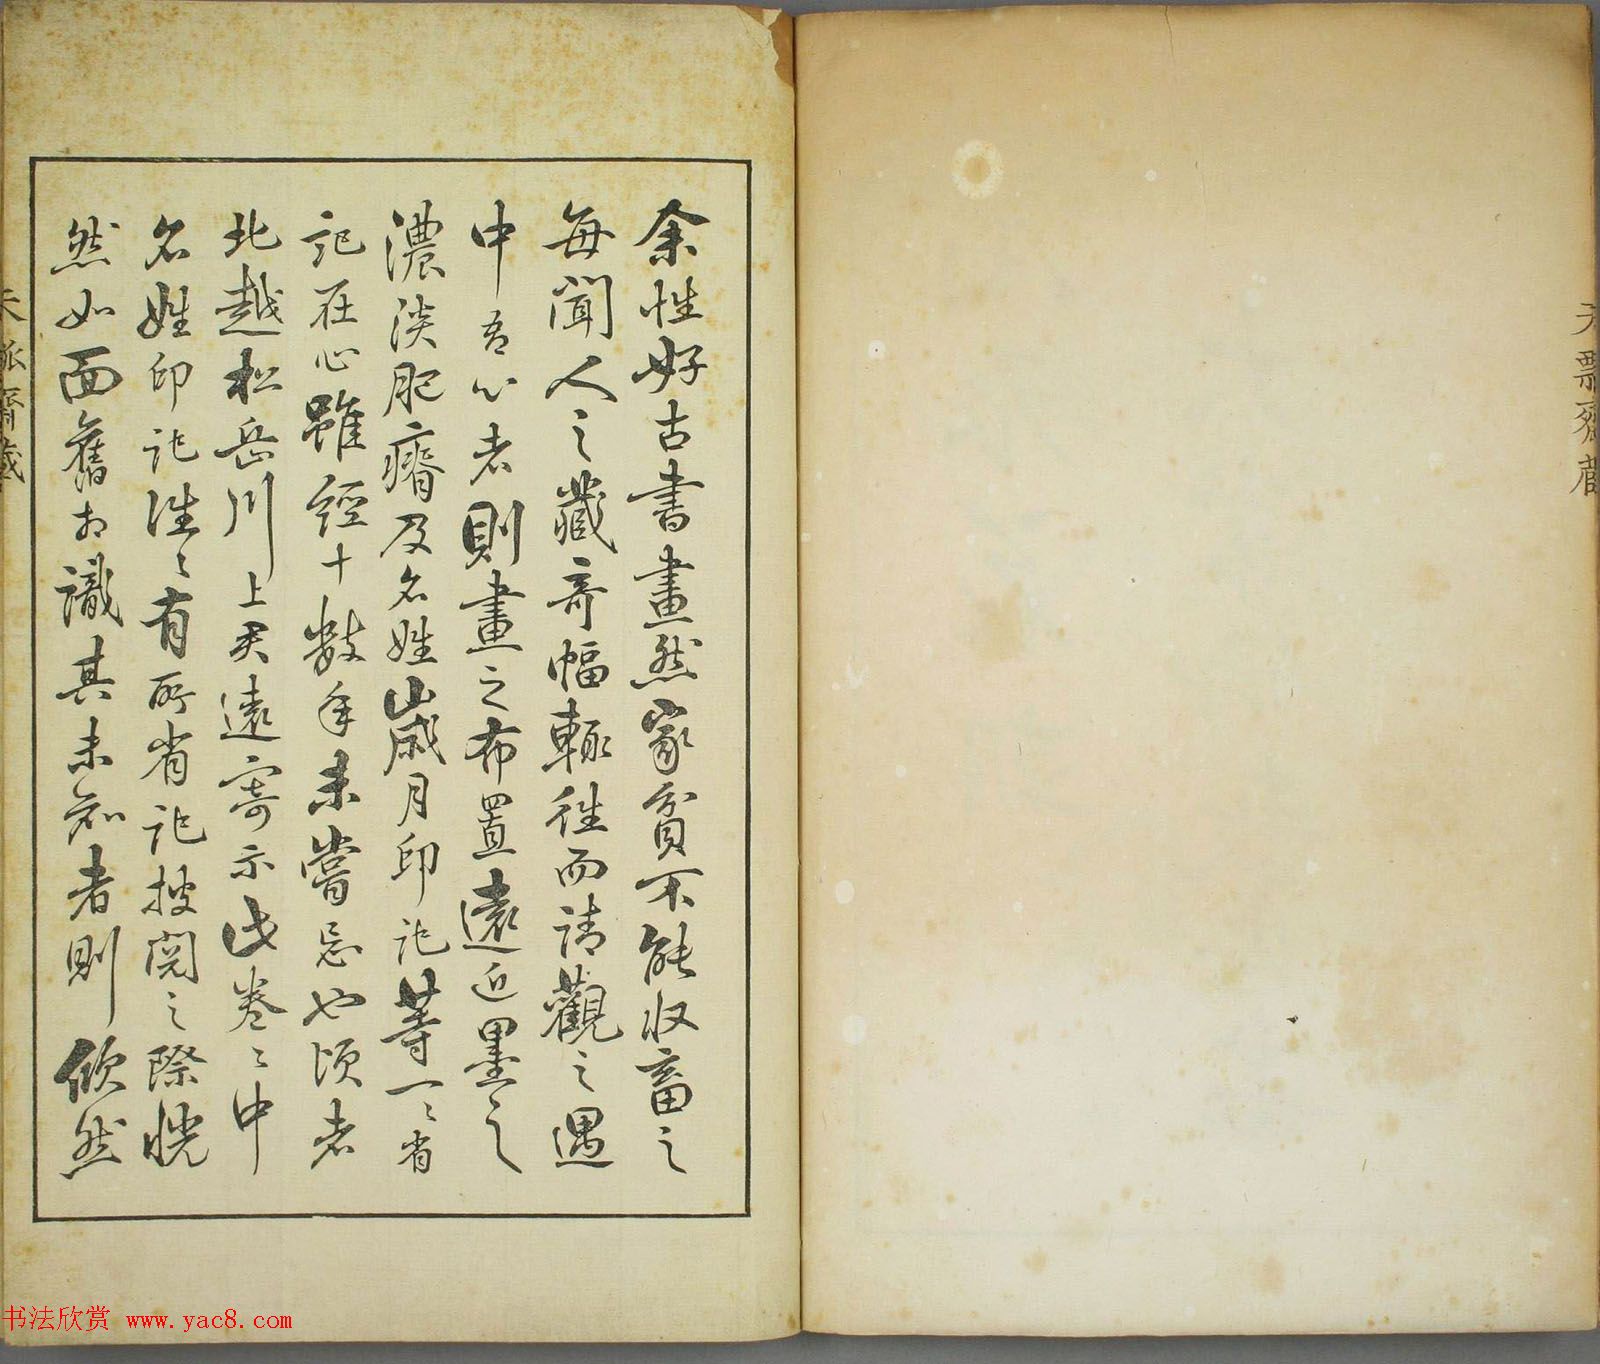 余性好古書畫然家貧不能収畜之
每聞人之藏奇幅輒往而請觀之遇
中吾心者則畫之布置遠近墨之
濃淡肥瘠及名姓歲月印記等一〻省
記在心雖經十數年未嘗忘也頃者
北越松岳川上君遠寄示此卷〻中
名姓印記往〻有所省記披閱之際恍
然如面舊相識其未知者則欣然
齋藏
書法欣赏 www.yac8.com